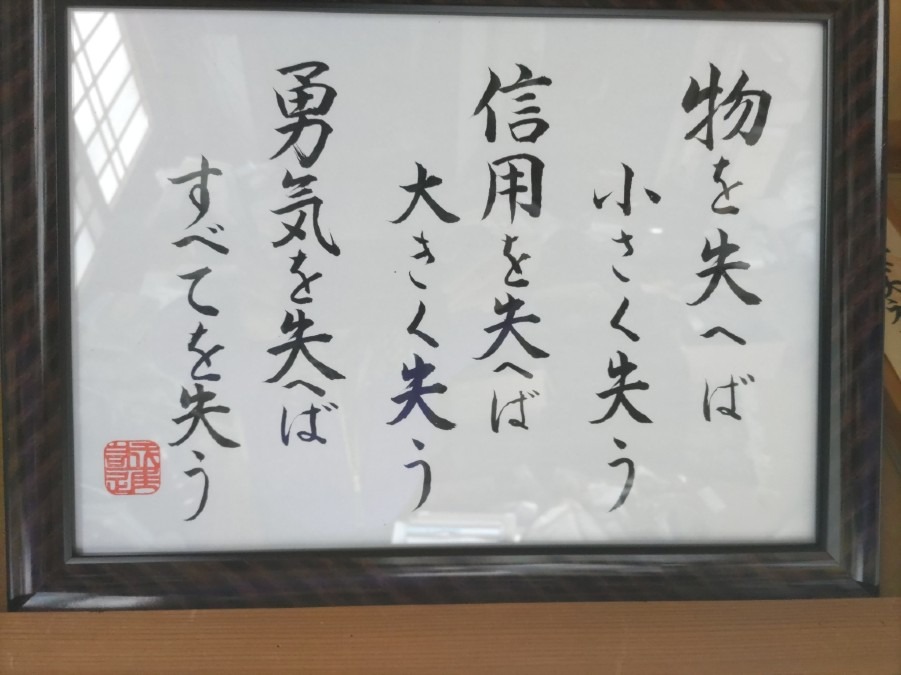 物を失へば
小さく失う
信用を失へば
大きく失う
勇気を失へば
すべてを失う